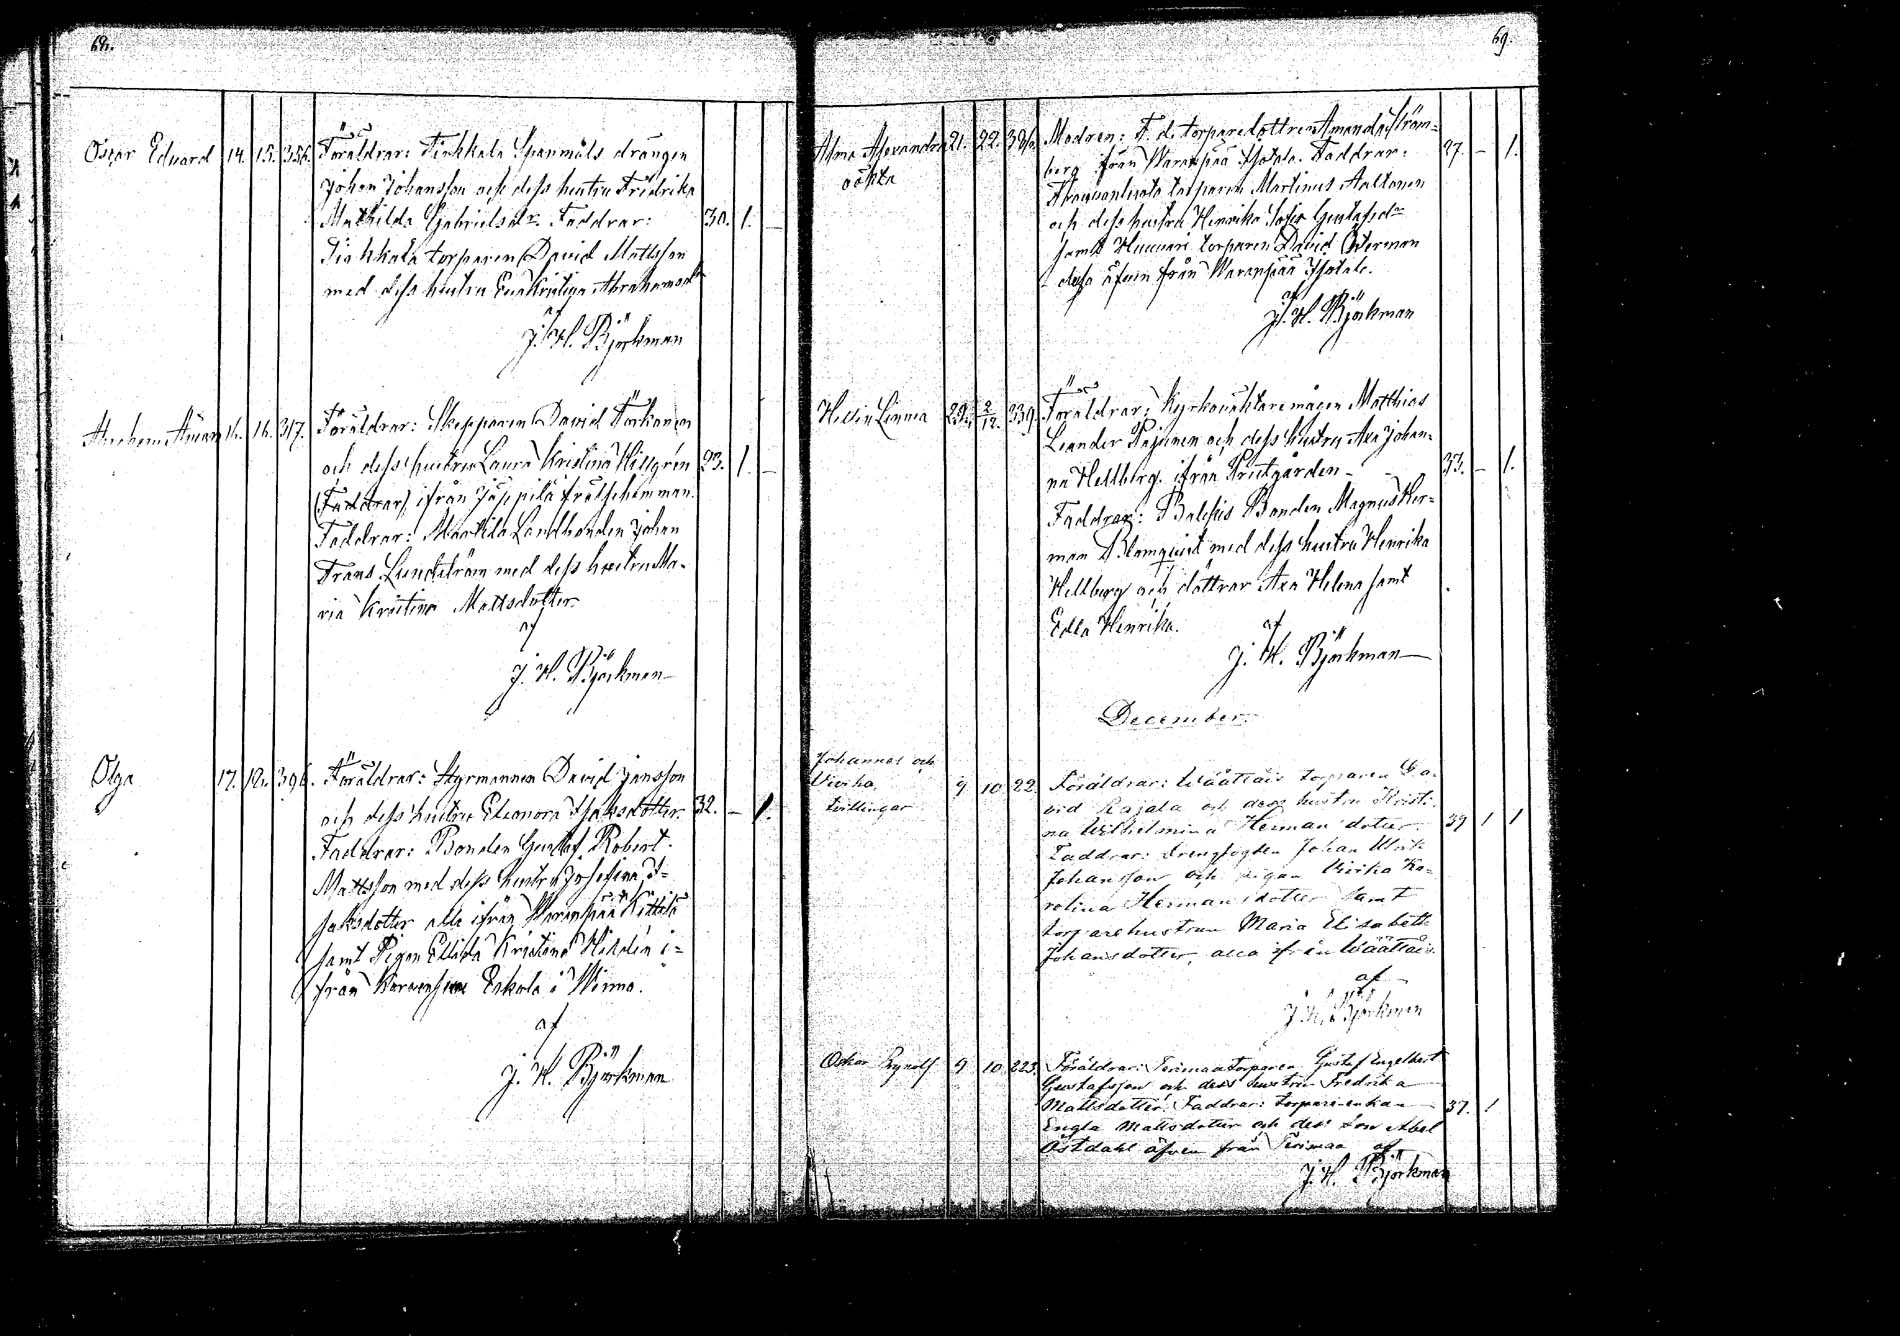 68.
Oscar Eduard 14. 15. 356. Föräldrar: Tinkkala Spanmåls drängen
Johan Johansson och dess hustru Fredrika
Mathilda Gabrielsdr. Faddrar: 30. 1. –
Tinkkala torparen David Mattsson
med dess hustru Eva Kristina Abrahamsdr
af
J. H. Björkman
16. 16. 317. Föräldrar: Skepparen David
och dess hustru Laura Kristina Hillgrén 23. 1. –
(Faddrar) ifrån Jäppilä frälsehemman.
Faddrar: Landbonden Johan
Frans Lundström med dess hustru Ma-
ria Kristina Mattsdotter
af
J. H. Björkman
Olga 17. 18. 396. Föräldrar: Styrmannen David Jansson
och dess hustru Eleonora Isaksdotter. 32. – 1.
Faddrar: Bonden Gustaf Robert
Mattsson med dess hustru Josefina I-
saksdotter alla ifrån Waranpää
samt Pigan Kristina i-
från Eskola i Wirmo.
af
J. H. Björkman
69.
Alma Alexandra 21. 22. 386. Modren: F. d. torparedottren Amanda Ström-
oäkta berg från Waranpää Isotalo. Faddrar: 27. – 1.
torparen Martinus Aaltonen
och dess hustru Henrika Sofia Gustafsdr
samt torparen David Österman
dessa äfven från Waranpää Isotalo.
af
J. H. Björkman
Linnea 29. 2/12. 339. Föräldrar: Kyrkovaktaremågen Matthias
Leander Pajunen och dess hustru Axa Johan-
na Hellberg ifrån Prestgården – 33. – 1.
Faddrar: Bonden Magnus Her-
man Blomquist med dess hustru Henrika
Hellberg och döttrar Axa Helena samt
Edla Henrika. af
J. H. Björkman
December.
Johannes och
Ulrika, 9 10 22. Föräldrar: Wäättäis torparen Da-
tvillingar vid Rajala och dess hustru Kristi-
na Wilhelmina Hermansdotter. 39 1 1
Faddrar: Drengfogden Johan Ulrik
Johansson och pigan Ulrika Ka-
rolina Hermansdotter samt
torparehustrun Maria Elisabeth
Johansdotter, alla ifrån Wäättäis.
af
J. H. Björkman
Oskar Brynolf 9 10 223. Föräldrar: torparen Gustaf Engelbert
Gustafsson och dess hustru Fredrika
Mattsdotter. Faddrar: torpareenkan 37. 1
Engla Mattsdotter och dess son Abel
Östdahl äfven från af
J. H. Björkman